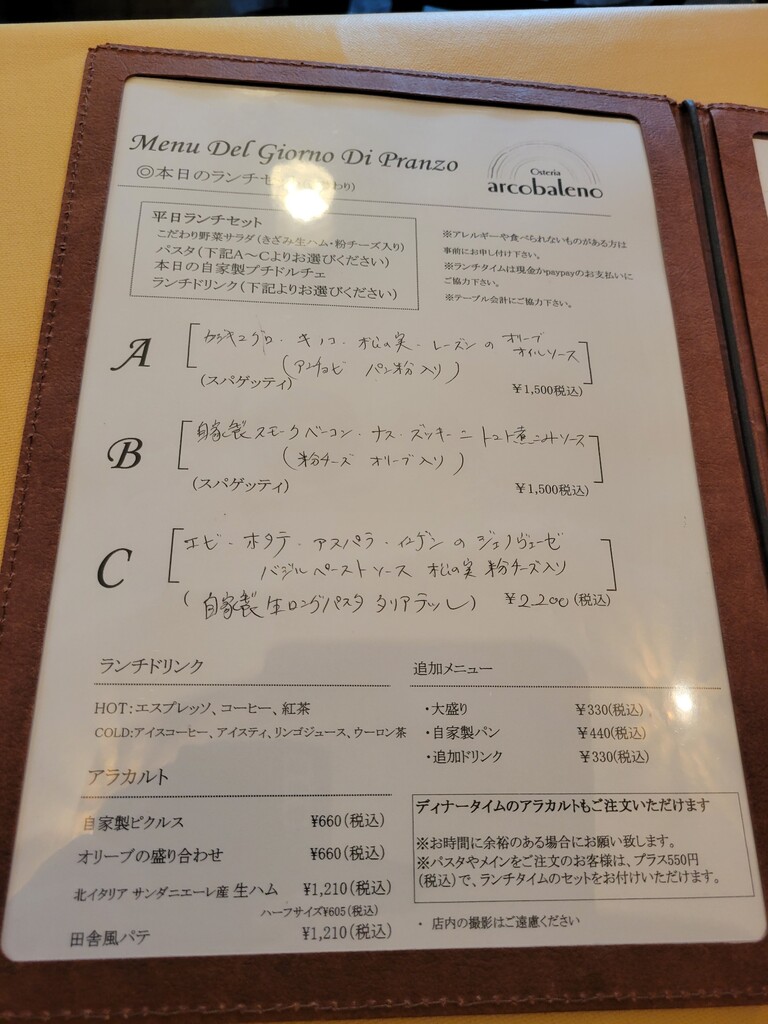 Menu Del Giorno Di Pranzo
Osteria
arcobaleno
◎本日のランチセ わり)
平日ランチセット
こだわり野菜サラダ(きざみ生ハム・粉チーズ入り)
パスタ(下記A～Cよりお選びください)
本日の自家製プチドルチェ
ランチドリンク(下記よりお選びください)
※アレルギーや食べられないものがある方は
事前にお申し付け下さい。
※ランチタイムは現金かpaypayのお支払いに
ご協力下さい。
※テーブル会計にご協力下さい。
A
カジキマグロ・キノコ・松の実・レーズンの オリーブ
オイルソース
(アンチョビ パン粉入り)
(スパゲッティ)
¥1,500税込)
B
自家製スモークベーコン・ナス・ズッキーニ トマト煮込みソース
(粉チーズ オリーブ入り)
(スパゲッティ)
¥1,500税込)
C
エビ・ホタテ・アスパラ・インゲンのジェノヴェーゼ
バジルペーストソース 松の実 粉チーズ入り
(自家製生ロングパスタ タリアテッレ) ¥2,200(税込)
ランチドリンク
HOT:エスプレッソ、コーヒー、紅茶
COLD:アイスコーヒー、アイスティ、リンゴジュース、ウーロン茶
追加メニュー
・大盛り ¥330(税込)
・自家製パン ¥440(税込)
・追加ドリンク ¥330(税込)
アラカルト
自家製ピクルス ¥660(税込)
オリーブの盛り合わせ ¥660(税込)
北イタリア サンダニエーレ産 生ハム ¥1,210(税込)
ハーフサイズ¥605(税込)
田舎風パテ ¥1,210(税込)
ディナータイムのアラカルトもご注文いただけます
※お時間に余裕のある場合にお願い致します。
※パスタやメインをご注文のお客様は、プラス550円
(税込)で、ランチタイムのセットをお付けいただけます。
・ 店内の撮影はご遠慮ください